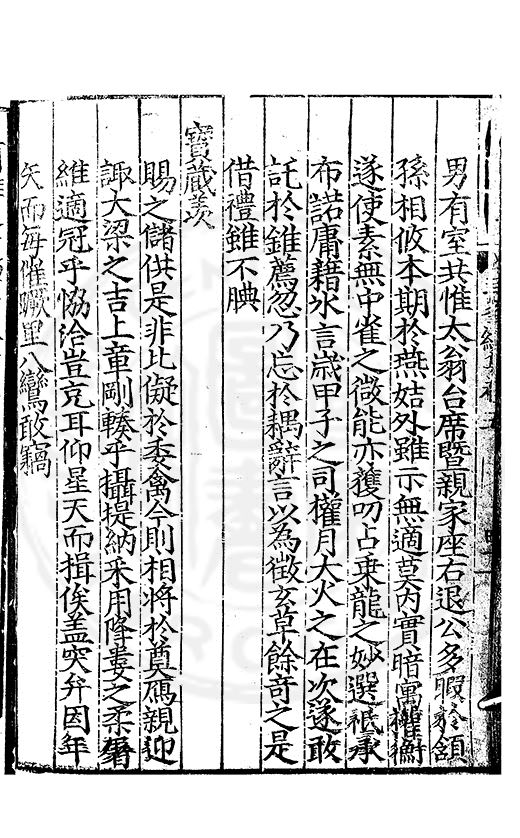 男有室共惟太翁台席暨親家座右退公多暇含頷
孫相攸本期於燕姞外雖示無適莫內實暗寓權衡
遂使素無中雀之微能亦獲叨占乗龍之妙選祗承
布諾庸藉氷言歲甲子之司權月大火之在次遂敢
託於錐薦忽乃忘於耦辭言以為徵玄草餘奇之是
借禮雖不腆
寶蔵羡
賜之儲供是非比儗於委禽今則相将於奠鴈親迎
諏大梁之吉上章剛輳乎攝提納采用降婁之柔
維適冠乎恊洽豈克耳仰星天而揖俟盖突弁因年
矢而每催蹶里八鸞敢